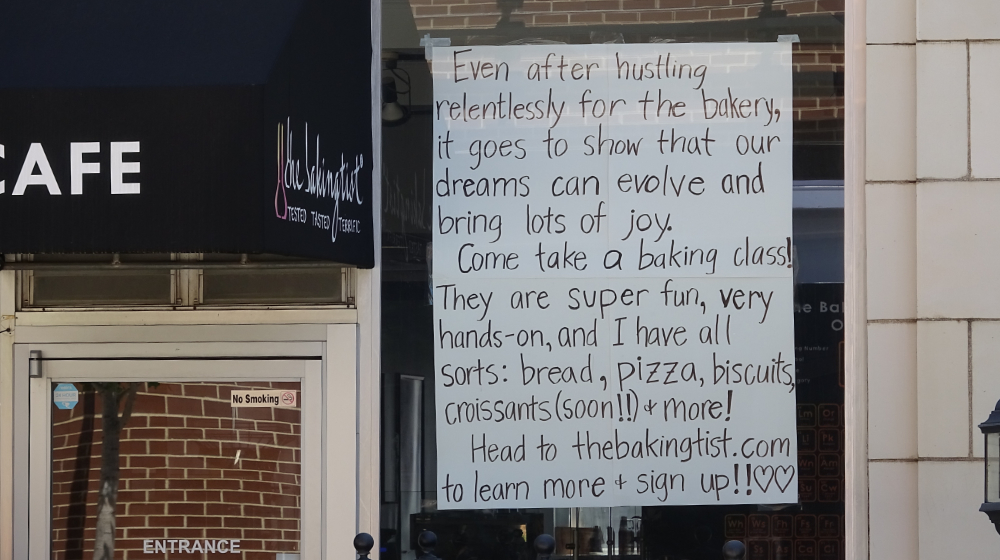 CAFE
the bakingtist
TESTED TASTED TERRIFIC
Even after hustling
relentlessly for the bakery,
it goes to show that our
dreams can evolve and
bring lots of joy.
Come take a baking class!
They are super fun, very
hands-on, and I have all
sorts: bread, pizza, biscuits,
croissants (soon!!) + more!
Head to thebakingtist.com
to learn more + sign up!!♡♡
No Smoking
ENTRANCE